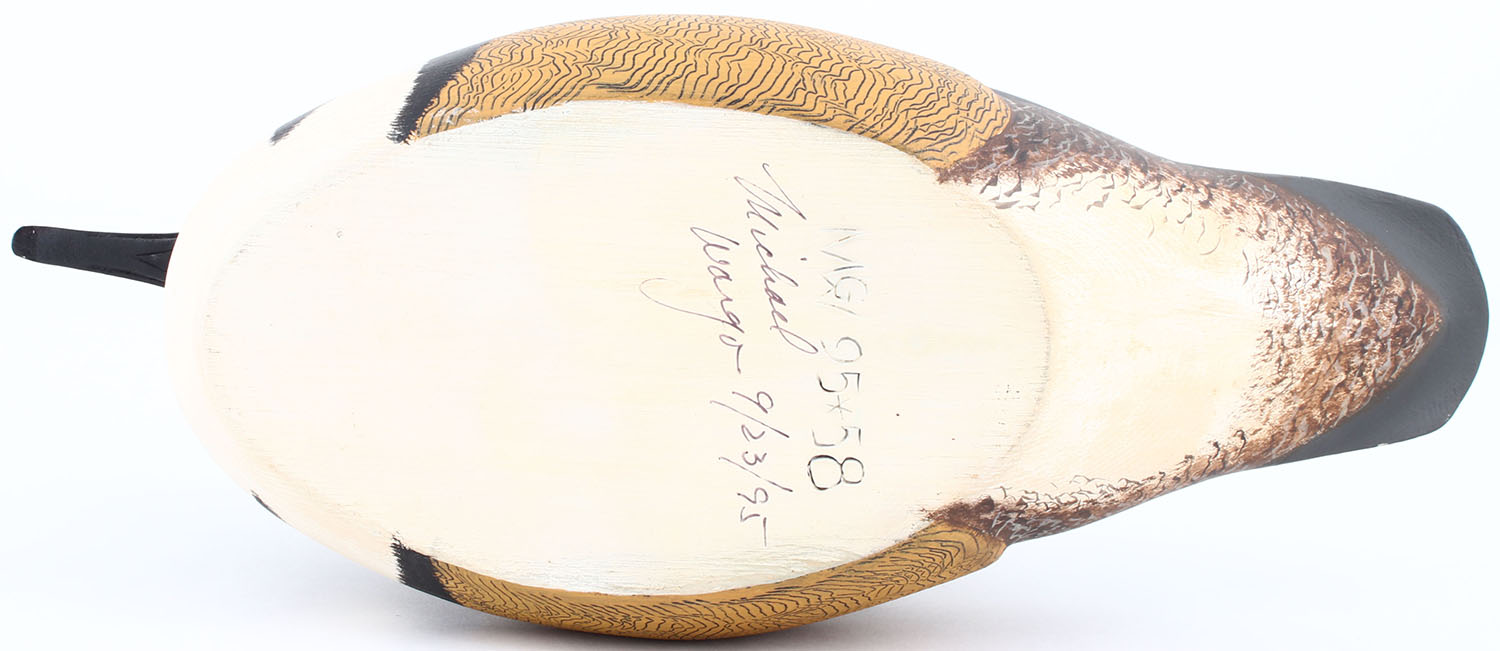 MG 95*58
Michael
Wargo 9/23/95